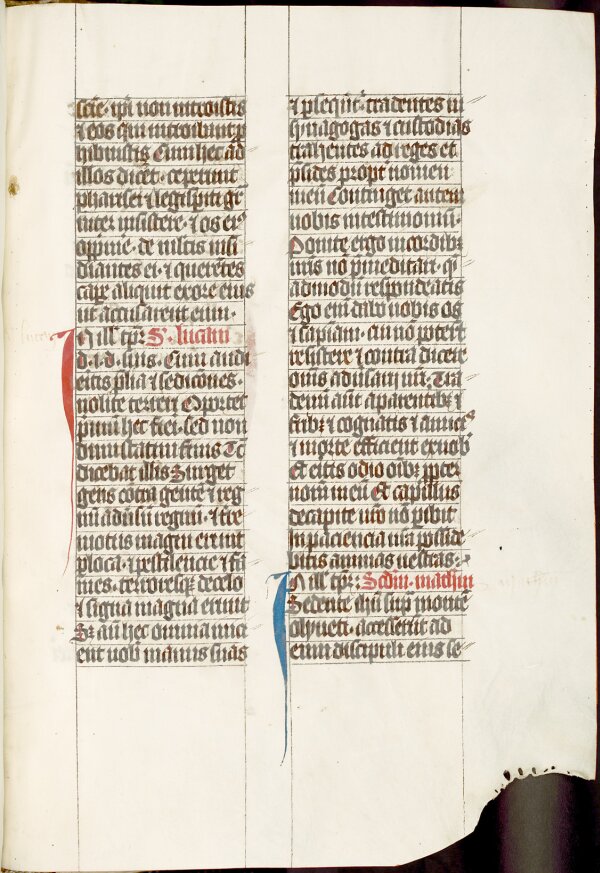 scie· ipi non introistis
⁊ eos qui introibant p
hibuistis Cum hec ad
illos dicet· ceperunt
pharisei ⁊ legisperiti gr
uiter insistere· ⁊ os eiꝰ
opprime· de multis insi
diantes ei· ⁊ querētes
cape aliquit ex ore eius
ut accusarent eum·
In ill tpr: S· lucam
d· i· d· suis· Cum audi
eritis plia ⁊ sediciōnes·
nolite terreri Oportet
pmū hec fieri· sed non
dum statim finis Tc̄
dicebat illis Surget
gens cōtra gentē ⁊ reg
nū adusū regnū· ⁊ tre
motus magni erunt
p loca· ⁊ pestilencie ⁊ fa
mes· terroresqꝫ de celo
⁊ signa magna erunt
Sꝫ an̄ hec omnia inici
ent uob manus suas
⁊ psequēt· tradentes in
synagogas ⁊ custodias
trahentes ad reges et
psides propt nomen
meū Continget autem
uobis in testimoniū·
Ponite ergo in cordibꝫ
uris nō pmeditari· qē
admodū respondeatis
Ego enī dabo uobis os
⁊ sapiam· cui nō potert
resistere ⁊ contradicere
oms adusarij uri· Tra
demi aut a parentibꝫ ⁊
fribꝫ ⁊ cognatis ⁊ amicꝭ
⁊ morte efficient ex uob
Et eritis odio oibꝫ ppter
nom̄ meū Et capillus
de capite uro nō pibit
In paciencia ura posside
bitis animas uestras:
In ill tpr: Scdm· matheū
Sedente ihū sup monte
olyueti· accesserūt ad
eum discipuli eius se